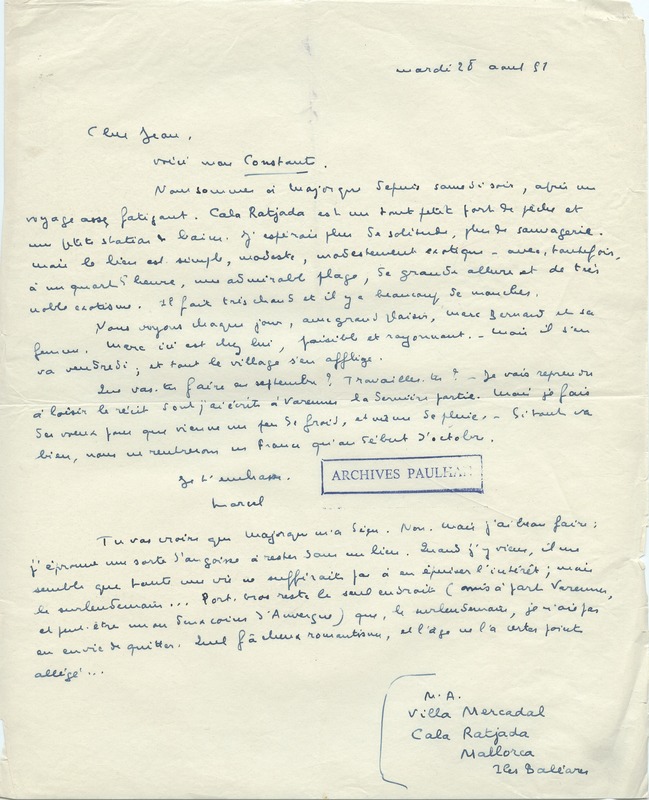 mardi 28 août 51
Cher Jean,
voici mon Constant.
Nous sommes à Majorque depuis samedi soir, après un
voyage assez fatigant. Cala Ratjada est un tout petit port de pêche et
une petite station de bains. J'espérais plus de solitude, plus de sauvagerie.
mais le lieu est simple, modeste, modestement exotique – avec, toutefois,
à un quart d'heure, une admirable plage, de grande allure et de très
noble exotisme. Il fait très chaud et il y a beaucoup de mouches.
Nous voyons chaque jour, avec grand plaisir, Marc Bernard et sa
femme. Marc ici est chez lui, paisible et rayonnant. – Mais il s'en
va vendredi ; et tout le village s'en afflige.
Que vas-tu faire en septembre ? Travailles-tu ? – Je vais reprendre
à loisir le récit dont j'ai écrit à Varennes la dernière partie. Mais je fais
des vœux pour que vienne un peu de froid, et même de pluie. – Si tout va
bien, nous ne rentrerons en France qu'au début d'octobre.
Je t'embrasse.
Marcel
ARCHIVES PAULHAN
Tu vas croire que Majorque m'a déçu. Non. Mais j'ai beau faire :
j'éprouve une sorte d'angoisse à rester dans un lieu. Quand j'y viens, il me
semble que toute une vie ne suffirait pas à en épuiser l'intérêt ; mais
le surlendemain ... Port-Cros reste le seul endroit (mis à part Varennes,
et peut-être un ou deux coins d'Auvergne) que, le surlendemain, je n'aie pas
eu envie de quitter. Quel fâcheux romantisme, et l'âge ne l'a certes point
allégé ...
M. A.
Villa Mercadal
Cala Ratjada
Mallorca
Iles Baléares